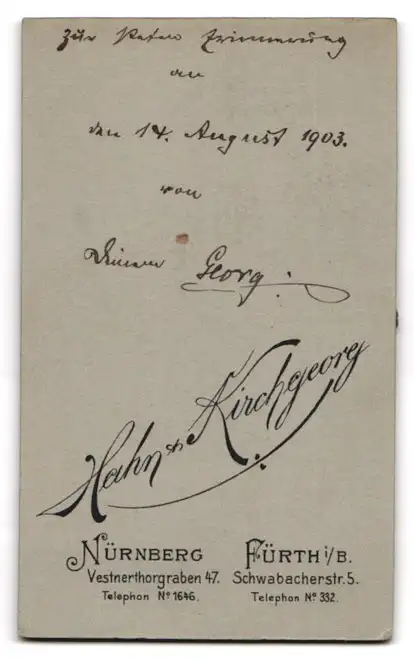 Zur steten Erinnerung
an
den 14. August 1903.
von
Deinem Georg.
Hahn & Kirchgeorg
NÜRNBERG FÜRTH i/B.
Vestnerthorgraben 47. Schwabacherstr. 5.
Telephon No 1646. Telephon No 332.